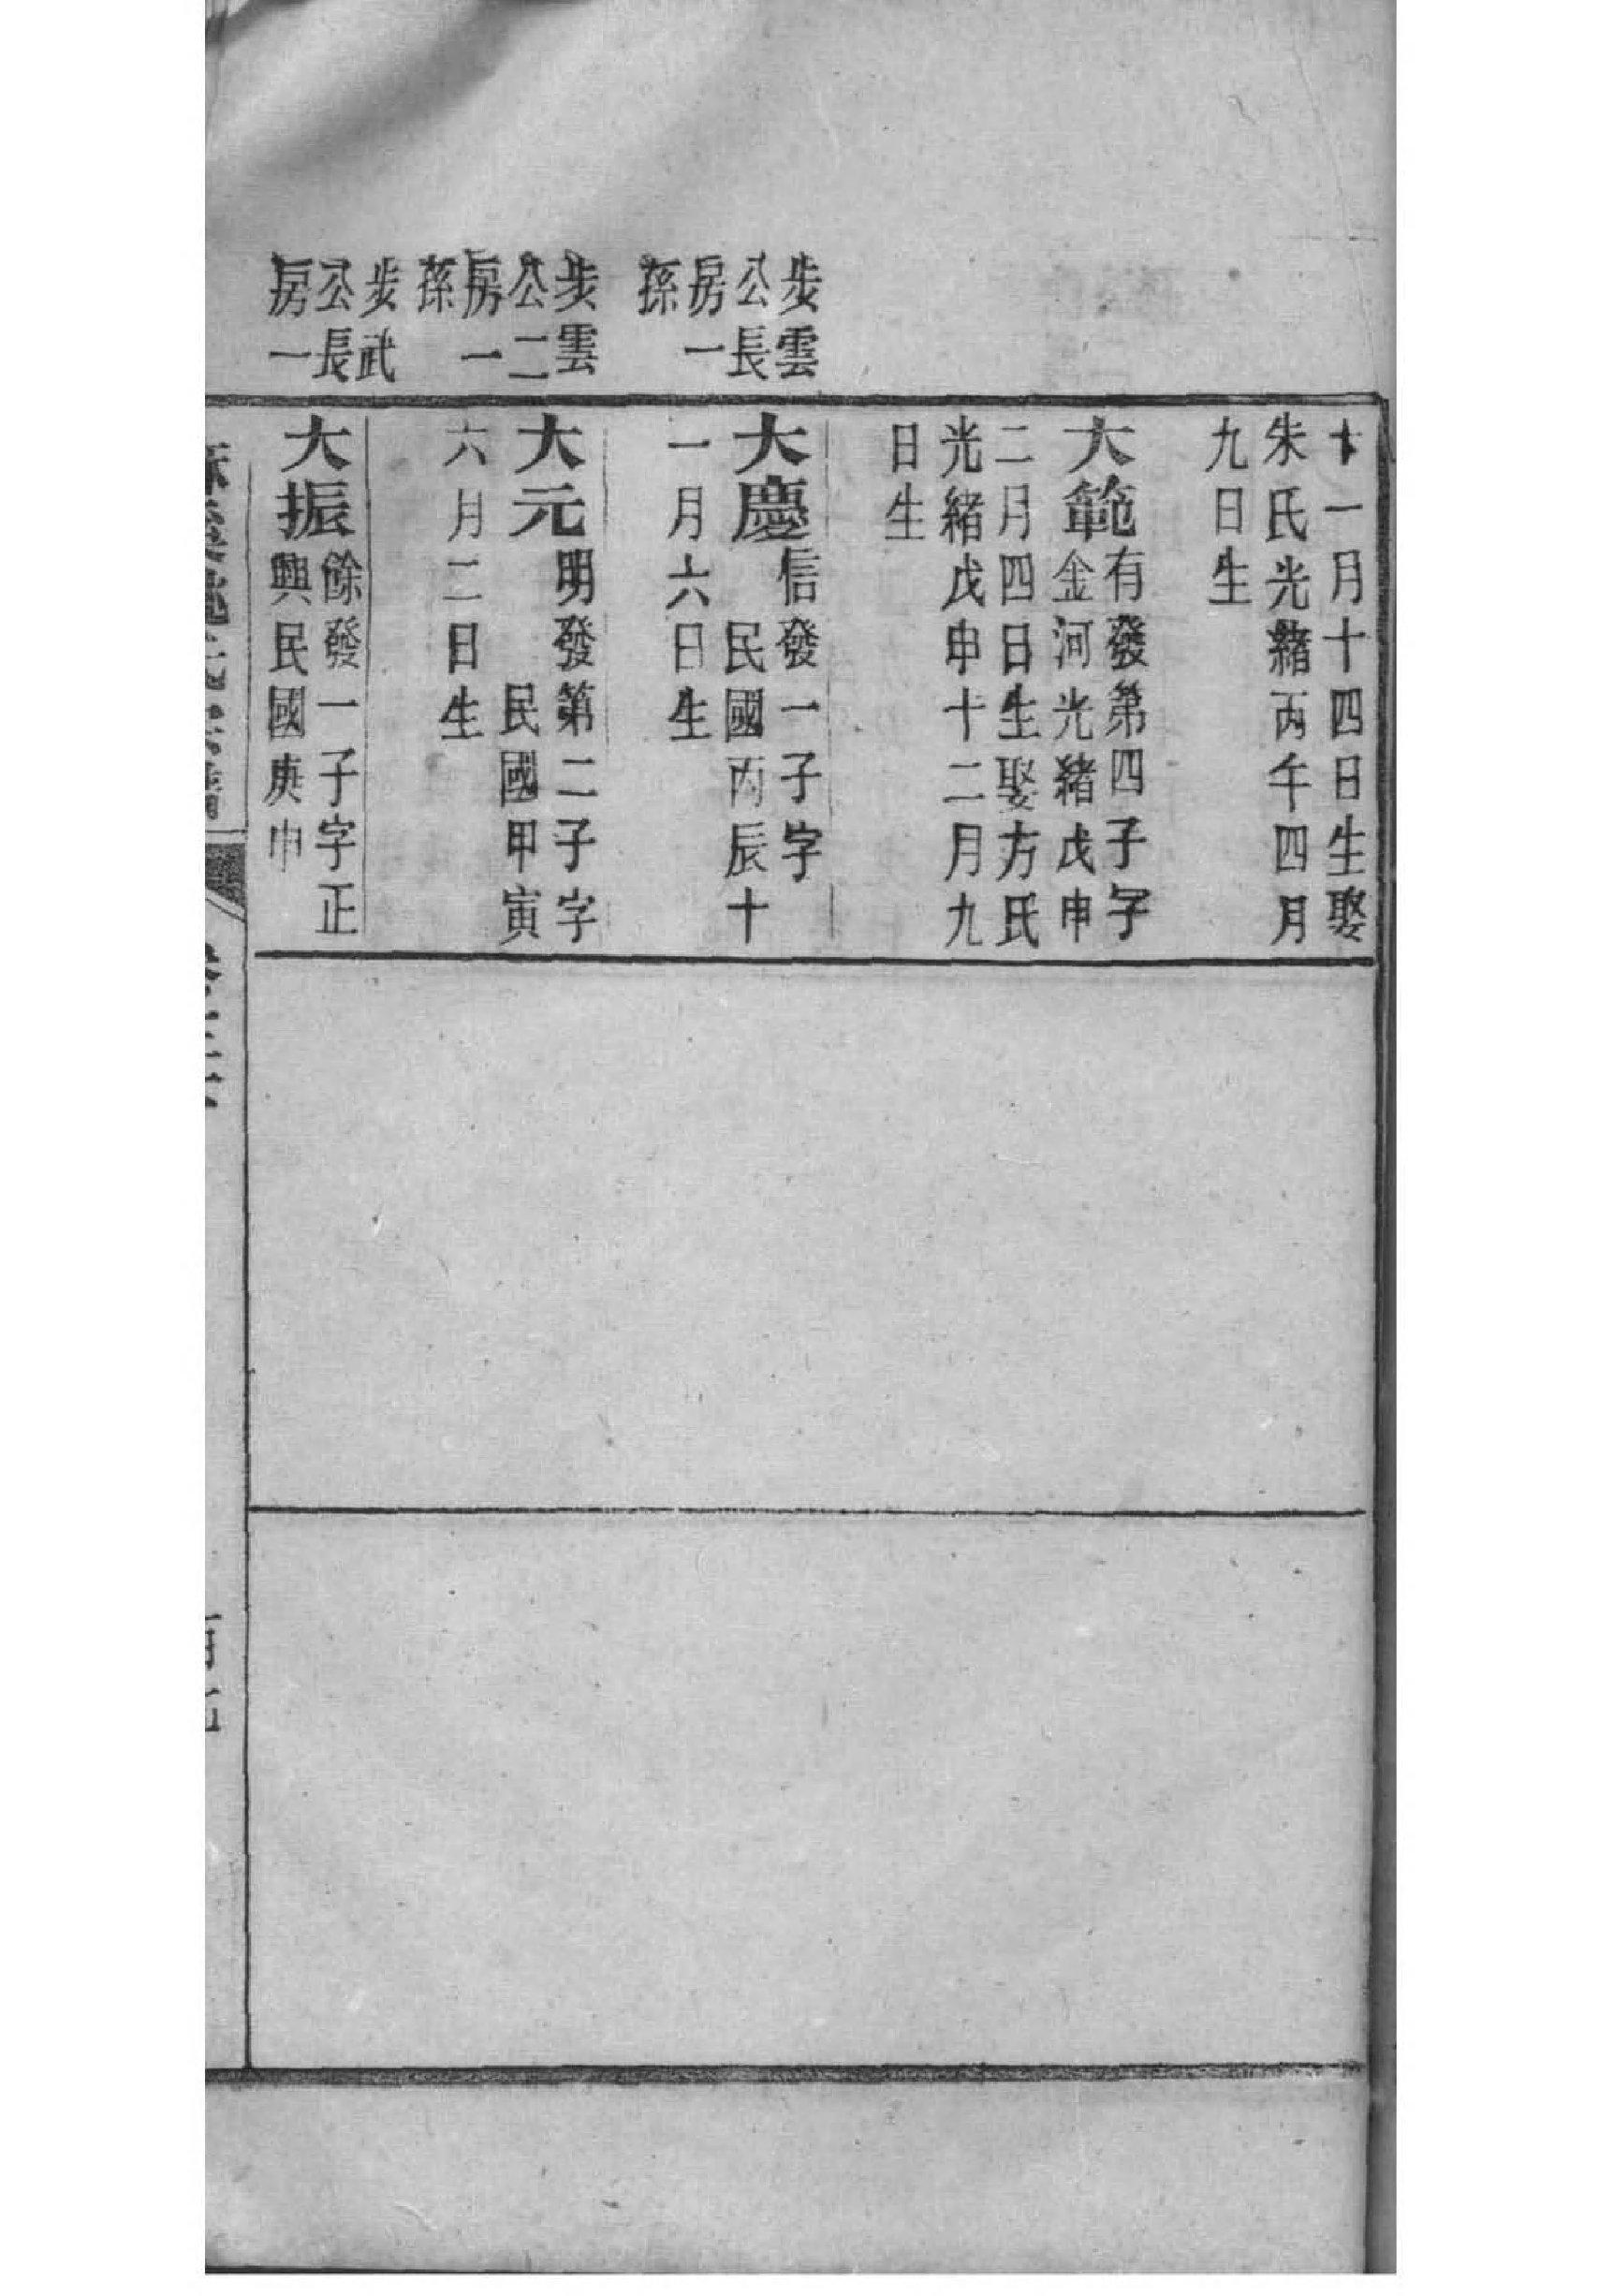 十一月十四日生娶
朱氏光緒丙午四月
九日生
大範有發第四子字
金河光緒戊申
二月四日生娶方氏
光緒戊申十二月九
日生
步雲
公長
房一
孫
大慶信發一子字
民國丙辰十
一月六日生
步雲
公二
房一
孫
大元明發第二子字
民國甲寅
六月二日生
步武
公長
房一
大振餘發一子字正
興民國庚申